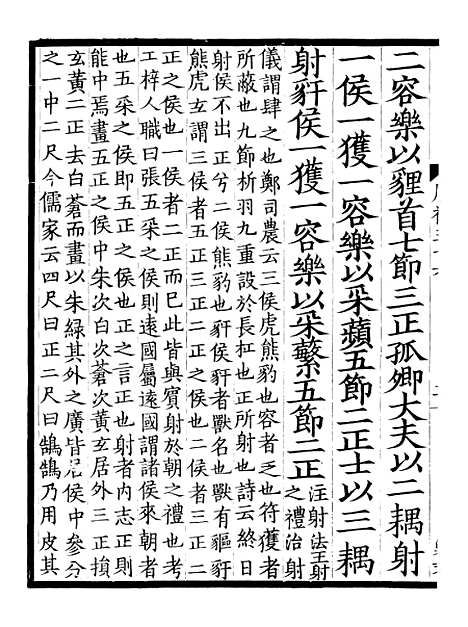 二容樂以貍首七節三正孤卿大夫以二耦射
一侯一獲一容樂以采蘋五節二正士以三耦
射豻侯一獲一容樂以采蘩五節二正
注射法王射
之禮治射
儀謂肆之也鄭司農云三侯虎熊豹也容者乏也符獲者
所蔽也九節析羽九重設於長杠也正所射也詩云終日
射侯不出正兮二侯熊豹也豻侯豻者獸名也獸有貙豻
熊虎玄謂三侯者五正三正二正之侯也二侯者三正二
正之侯也一侯者二正而巳此皆與賓射於朝之禮也考
工梓人職曰張五采之侯則遠國屬遠國謂諸侯來朝者
也五采之侯即五正之侯也正之言正也射者内志正則
能中焉畫五正之侯中朱次白次蒼次黃玄居外三正損
玄黃二正去白蒼而畫以朱綠其外之廣皆居侯中參分
之一中二尺今儒家云四尺曰正二尺曰鵠鵠乃用皮其